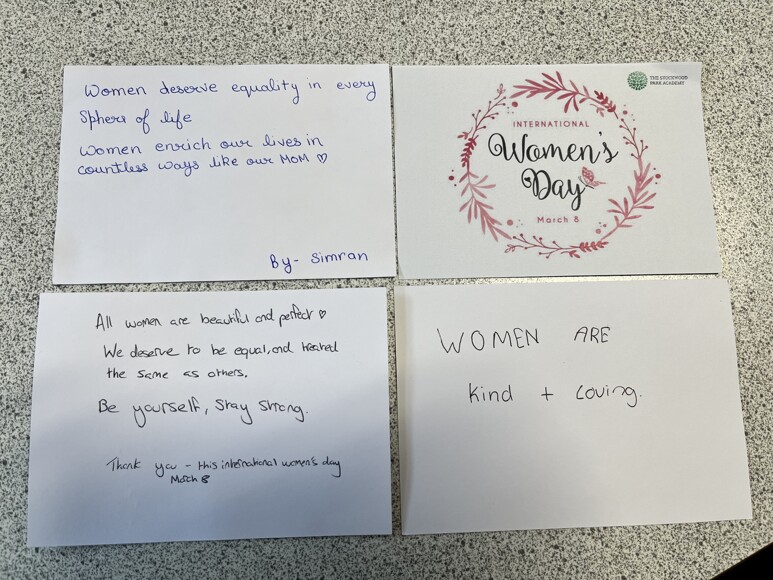 Women deserve equality in every
Sphere of life
Women enrich our lives in
countless ways like our MOM ♡
By- Simran
THE STOCKWOOD
PARK ACADEMY
INTERNATIONAL
Women's
Day
March 8
All women are beautiful and perfect ♡
We deserve to be equal, and treated
the same as others.
Be yourself, Stay strong.
Thank you - this international women's day
March 8
WOMEN ARE
kind + loving.